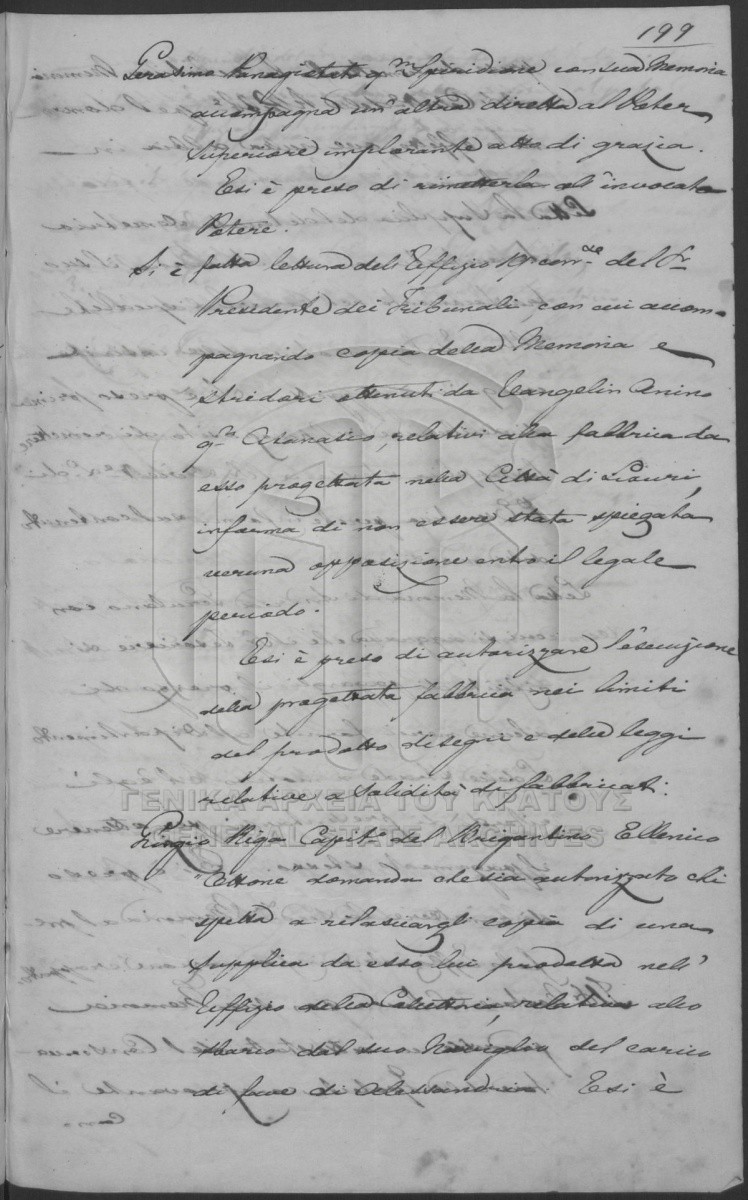 199
Gerasimo Panagiotato qm Spiridione con sua Memoria
accompagna un' altra diretta al Poter
Superiore implorante atto di grazia.
E si è preso di rimetterla all' invocato
Potere.
Si è fatta lettura dell' Uffizio del Sr
Presidente dei Tribunali con cui accom-
pagnando copia della Memoria e
stridori ottenuti da Evangelin Anino
qm Atanasio, relativi alla fabbrica da
esso progettata nella Città di Lixuri,
informa di non essere stata spiegata
veruna opposizione entro il legale
periodo.
E si è preso di autorizzare l'esecuzione
della progettata fabbrica nei limiti
del prodotto disegno e delle leggi
relative a solidità di fabbricati.
Giorgio Riga Capito del Brigantino Ellenico
domanda che sia autorizzato chi
spetta a rilasciargli copia di una
supplica da esso lui prodotta nell'
Uffizio della Colettoria, relativa allo
sbarco dal suo Naviglio del carico
di fave di Alessandria. E si è
ΓΕΝΙΚΑ ΑΡΧΕΙΑ ΤΟΥ ΚΡΑΤΟΥΣ
GENERAL STATE ARCHIVES